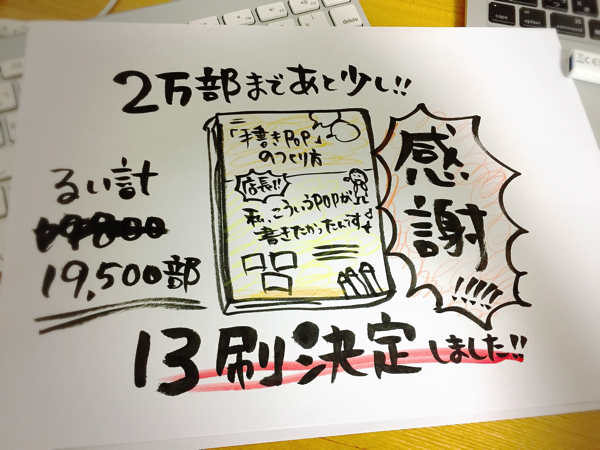 2万部まであと少し!!
「手書きPOP」
のつくり方
店長!!
私、こういうPOPが
書きたかったんです!
感謝!!!!!
るい計
19,500部
13刷決定しました!!
delete
caps
option
command